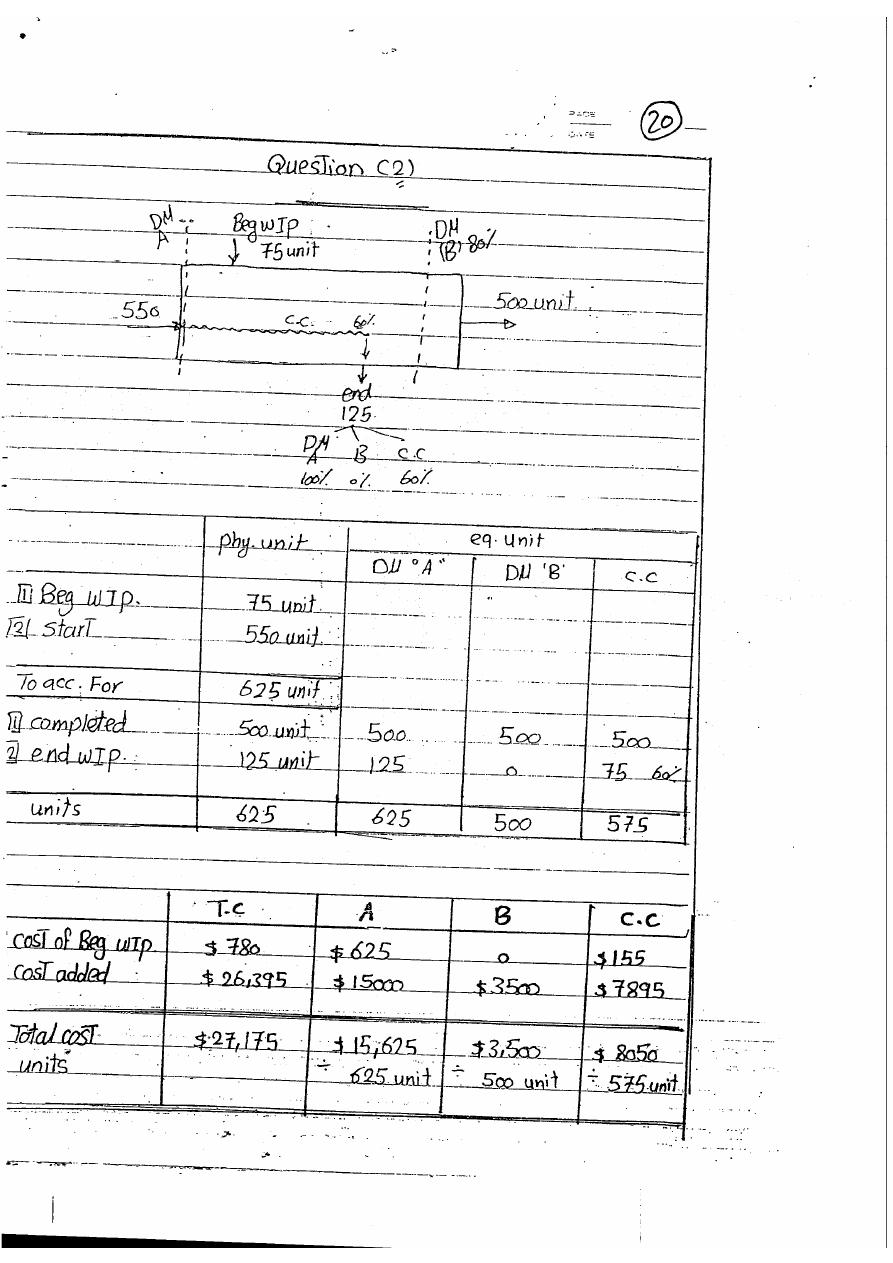 PAGE
DATE
20
Question (2)
DM A
Beg WIP
75 unit
DM (B) 80%
550
C.C. 60%
500 unit
end
125
DM A B C.C
100% 0% 60%
phy. unit eq. unit
DM "A" DM 'B' C.C
1 Beg WIP. 75 unit
2 Start 550 unit
To acc. For 625 unit
1 completed 500 unit 500 500 500
2 end WIP. 125 unit 125 0 75 60%
units 625 625 500 575
T.C A B C.C
cost of Beg WIP $ 780 $ 625 0 $155
cost added $ 26,395 $ 15000 $3500 $7895
Total cost $27,175 $ 15,625 $3,500 $ 8050
units ÷ 625 unit ÷ 500 unit ÷ 575 unit